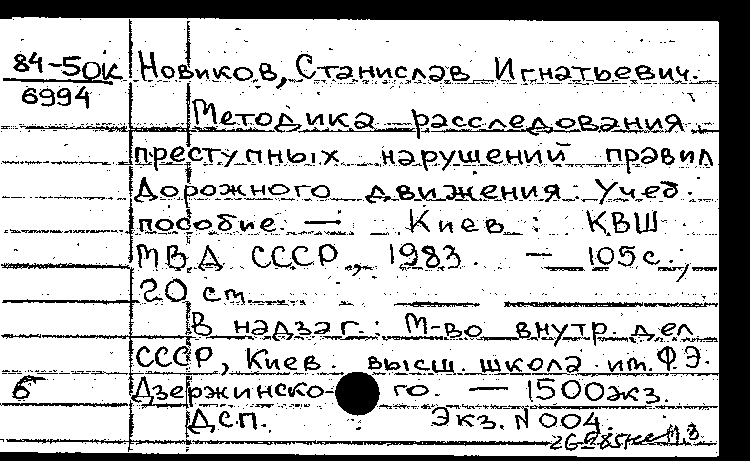 84-5ОК Новиков, Станислав Игнатьевич.
6994
Методика расследования
преступных нарушений правил
дорожного движения: Учеб.
пособие. — Киев: КВШ
МВД СССР, 1983. — 105с.;
20 см.
В надзаг.: М-во внутр. дел
СССР, Киев. высш. школа им. Ф.Э.
б Дзержинско- го. — 1500экз.
Дсп. Экз. N 004.